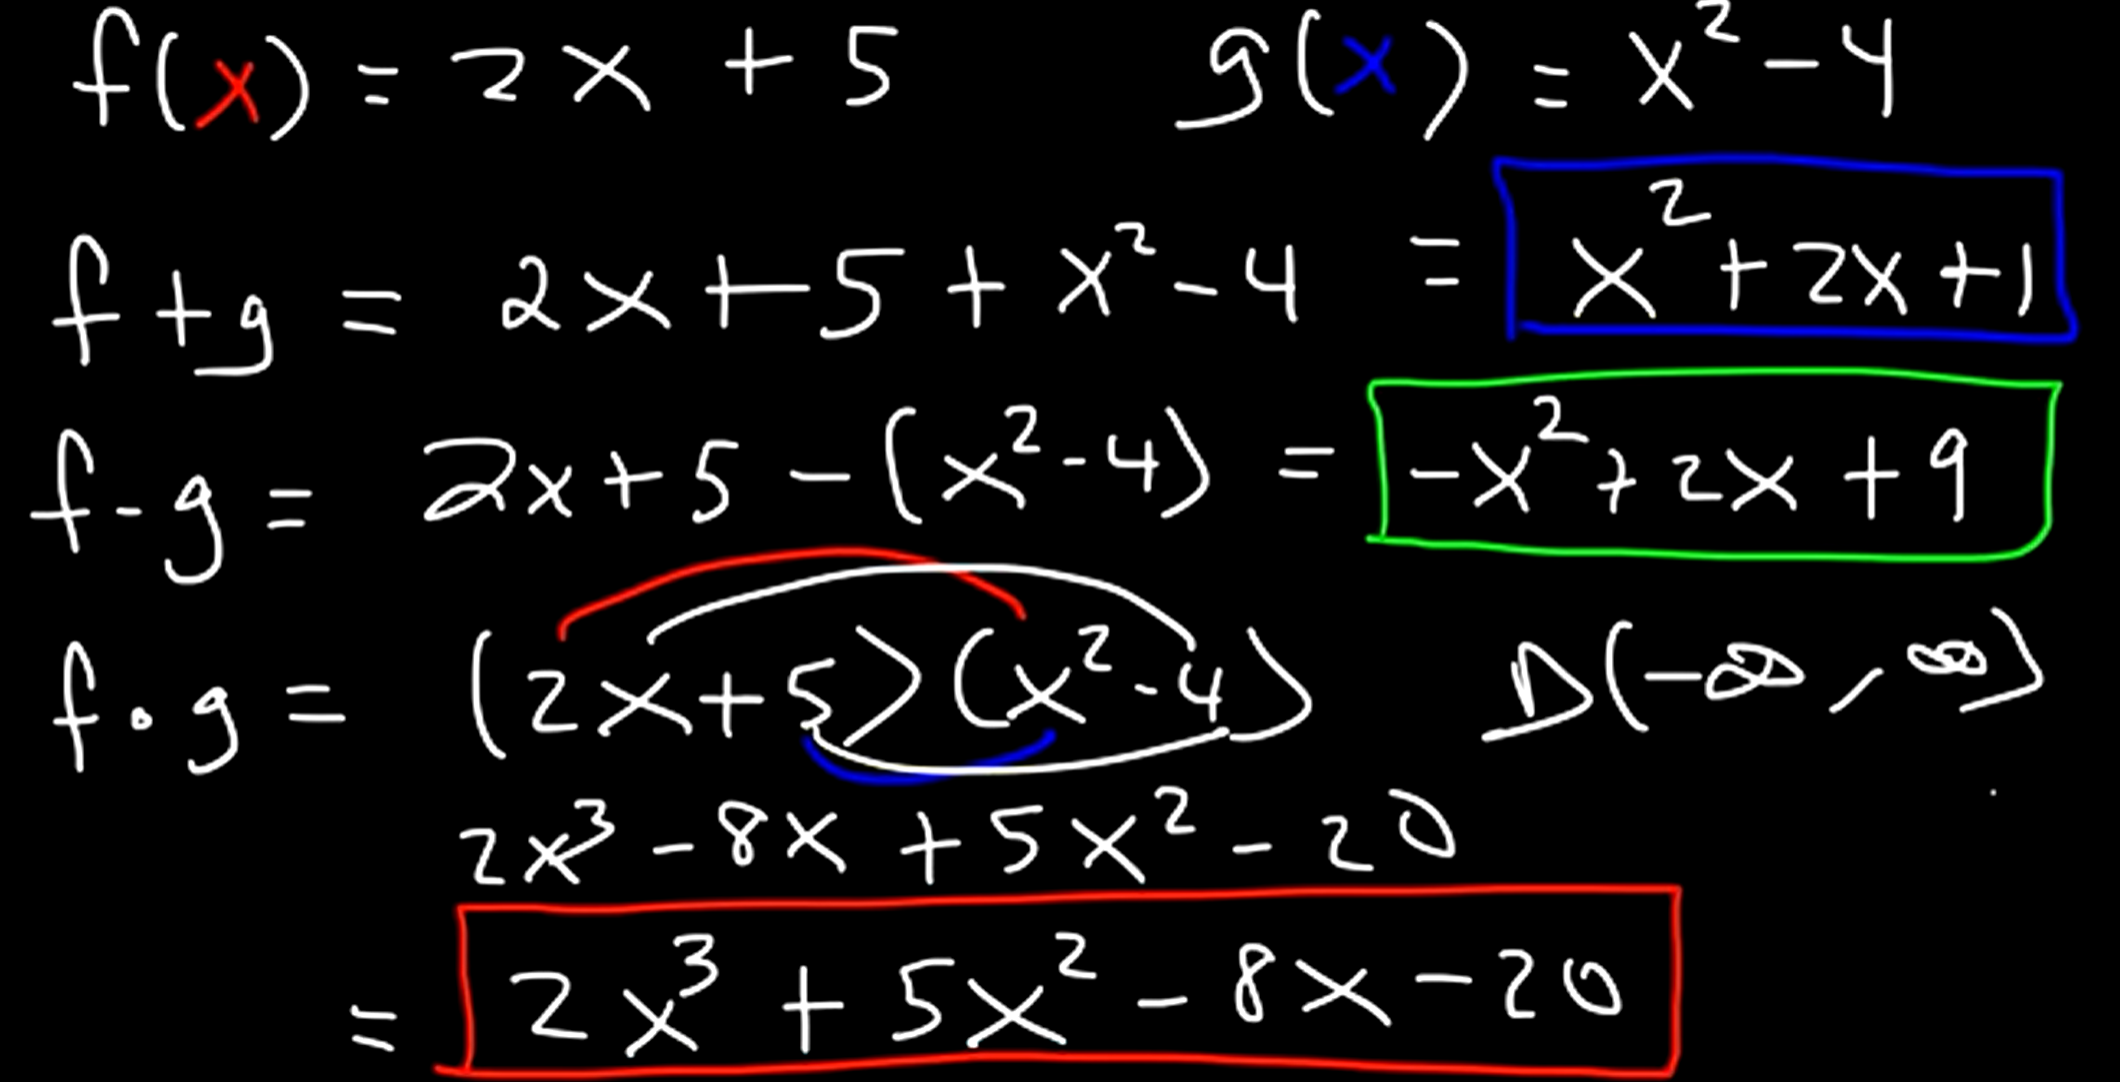 f(x) = 2x + 5 g(x) = x² - 4
f + g = 2x + 5 + x² - 4 = x² + 2x + 1
f - g = 2x + 5 - (x² - 4) = -x² + 2x + 9
f • g = (2x + 5)(x² - 4) D(-∞, ∞)
2x³ - 8x + 5x² - 20
= 2x³ + 5x² - 8x - 20